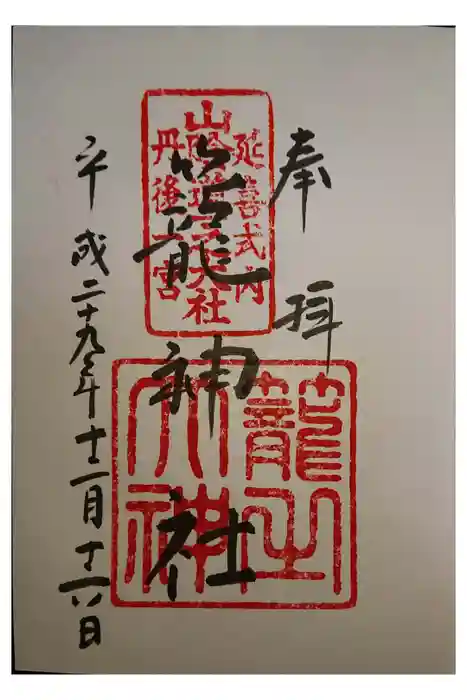 奉拝
延喜式内
山陰道大社
丹後一宮
籠神社
籠之大神
平成二十九年十二月十六日